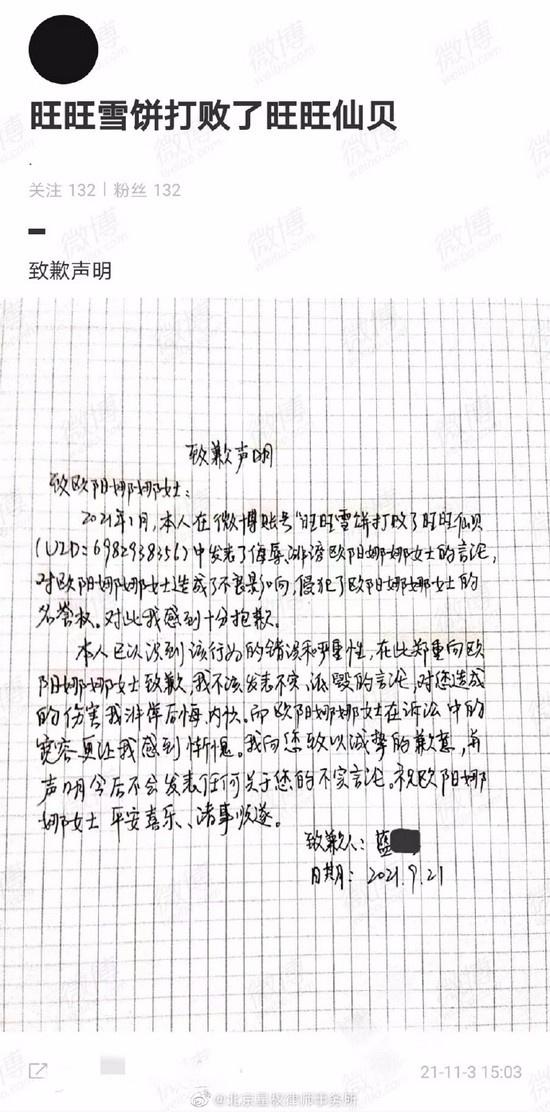 旺旺雪饼打败了旺旺仙贝
.
关注 132 | 粉丝 132
致歉声明
致歉声明
致欧阳娜娜女士:
2021年1月,本人在微博账号“旺旺雪饼打败了旺旺仙贝
(UID:6982938356)中发表了侮辱、诽谤欧阳娜娜女士的言论,
对欧阳娜娜女士造成了不良影响,侵犯了欧阳娜娜女士的
名誉权。对此我感到十分抱歉。
本人已认识到该行为的错误和严重性,在此郑重向欧
阳娜娜女士致歉,我不该发表不实、诋毁的言论,对您造成
的伤害我深深后悔、内疚。而欧阳娜娜女士在诉讼中的
宽容更让我感到惭愧。我向您致以诚挚的歉意,并
声明今后不会发表任何关于您的不实言论。祝欧阳娜
娜女士 平安喜乐、诸事顺遂。
致歉人:蓝
日期:2021.9.21
21-11-3 15:03
@北京星权律师事务所